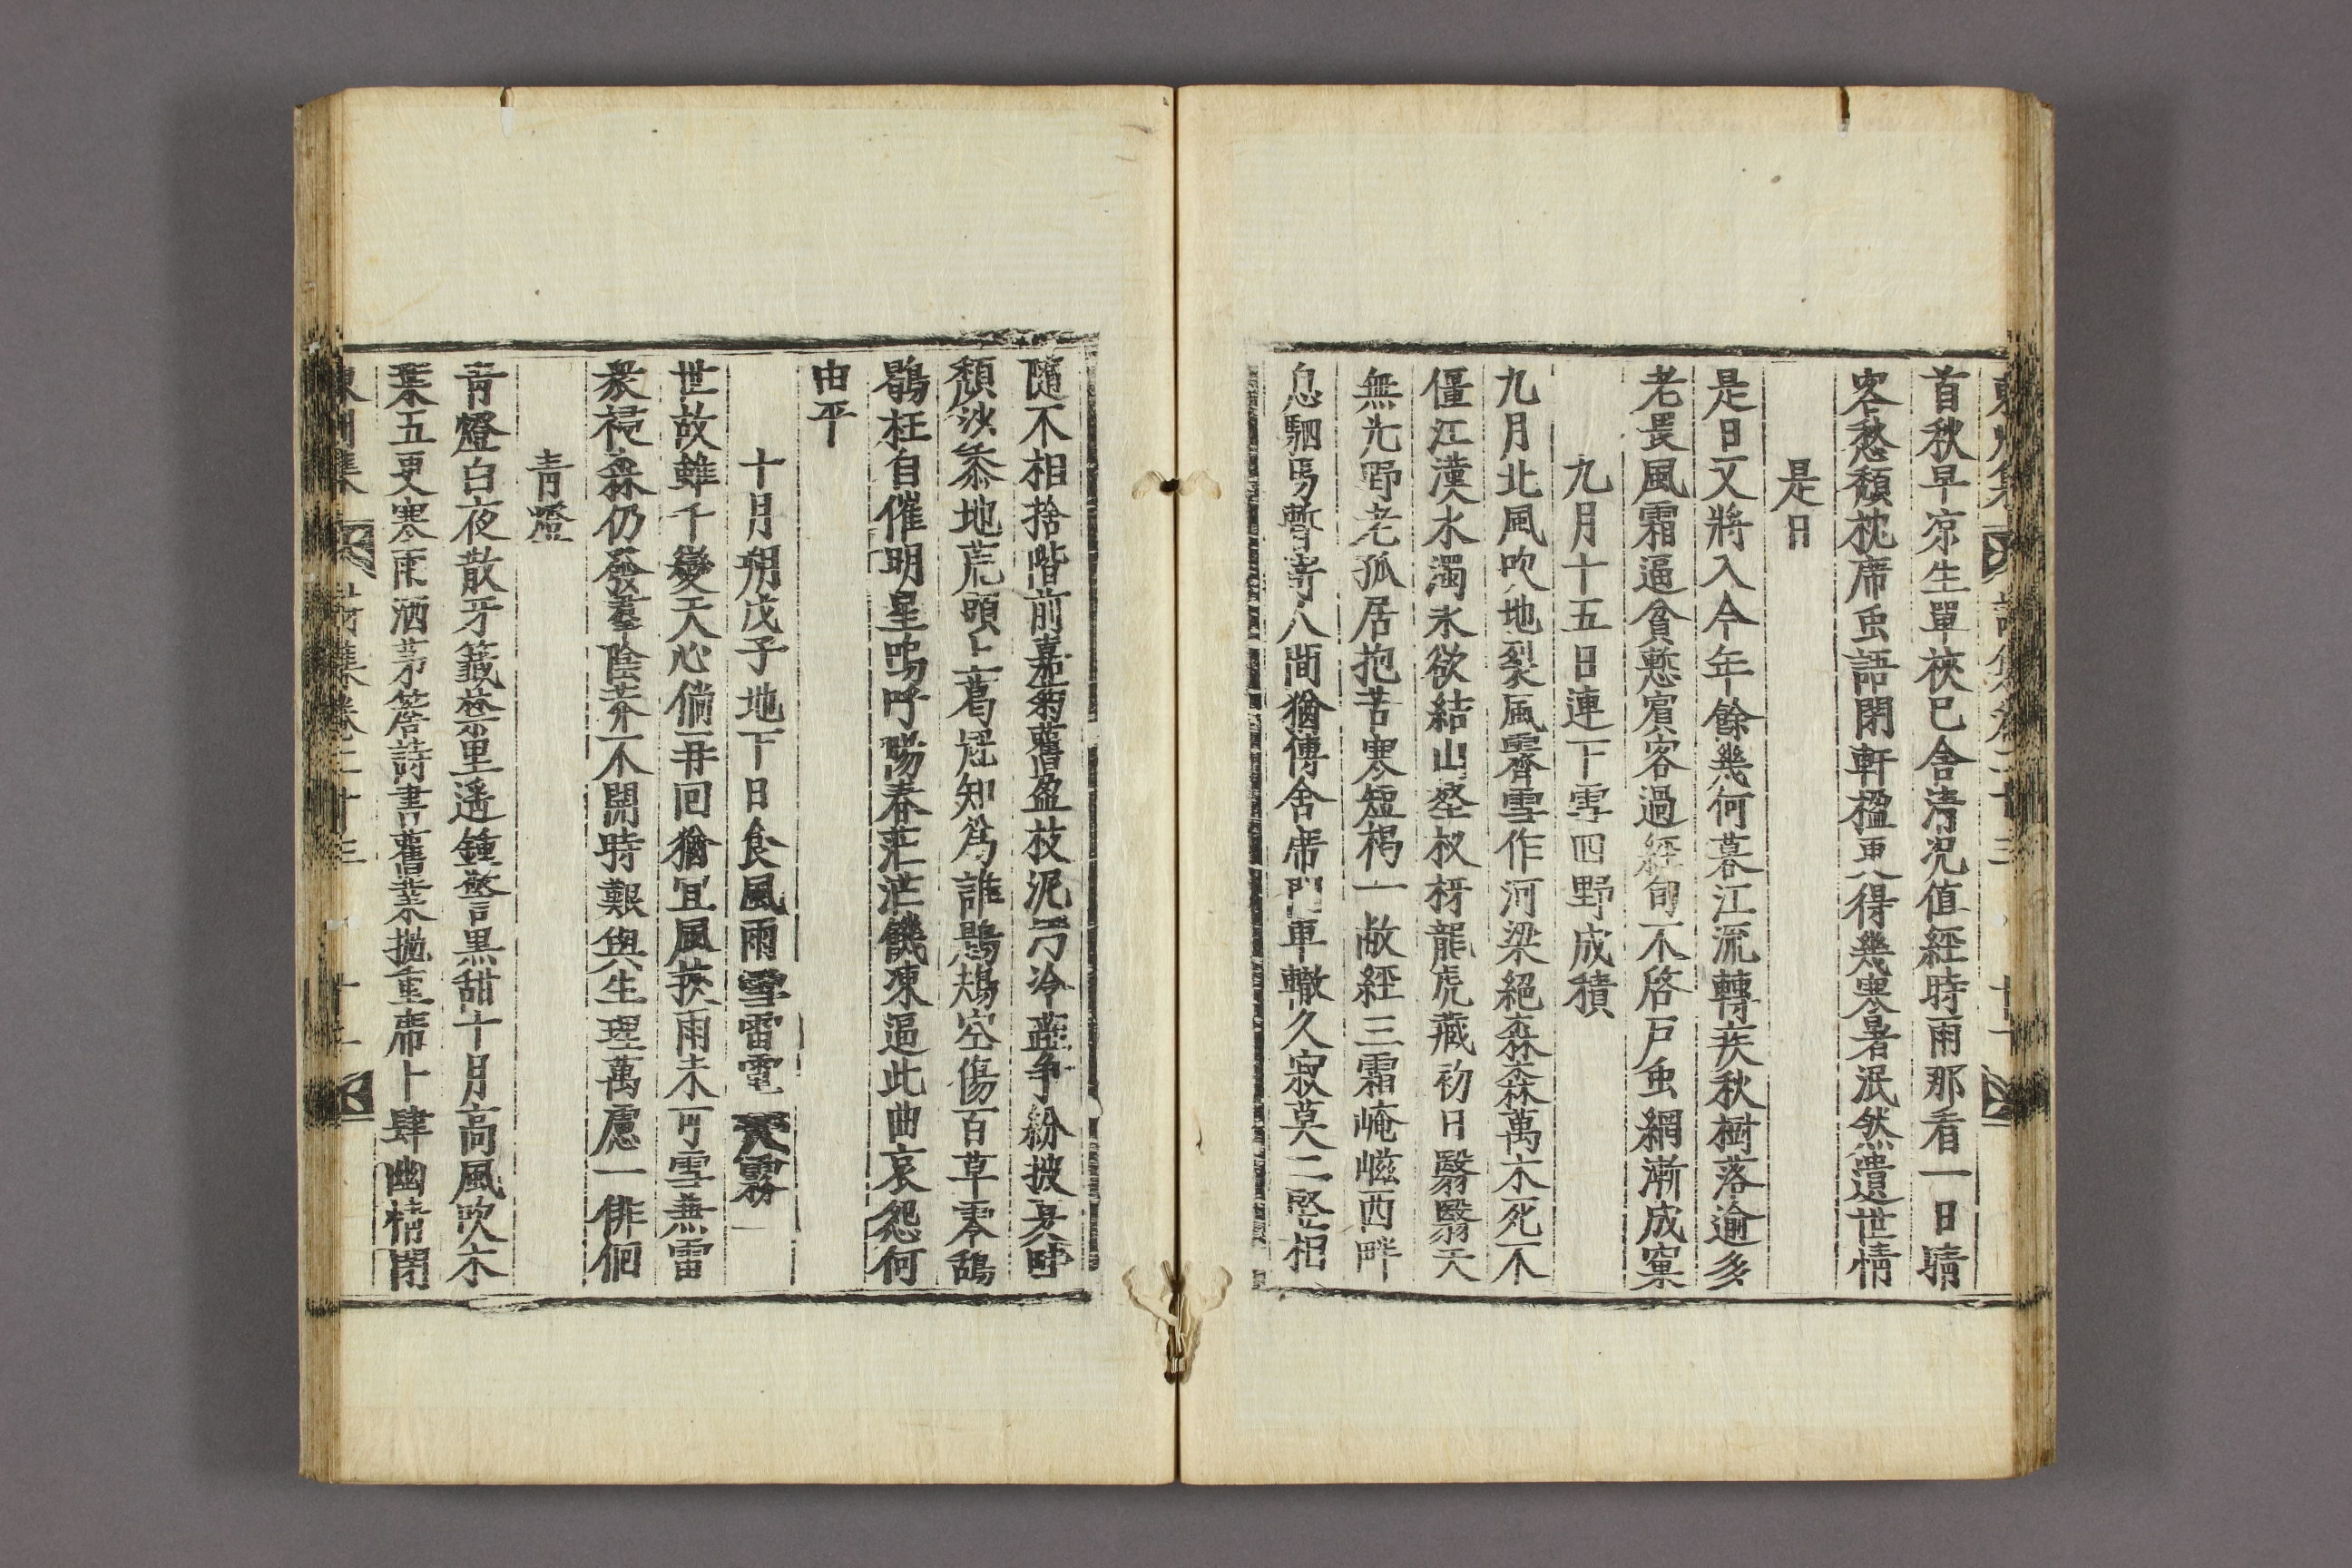 首秋早凉生單裌已含清况値經時雨那看一日晴
客愁頹枕席䖝語閉軒楹更得幾寒暑泯然遺世情
是日
是日又將入今年餘幾何暮江流轉疾秋樹落逾多
老畏風霜逼貧慙賓客過經旬不啓戶䖝網漸成窠
九月十五日連下雪四野成積
九月北風吹地裂風霽雪作河梁絕森森萬木死不
僵江漢水濁氷欲結山壑杈枒龍虎藏初日翳翳天
無光野老孤居抱苦寒短褐一敝經三霜崦嵫西畔
息駟馬暫寄人間猶傳舍席門車轍久寂莫二竪相
隨不相捨階前嘉菊舊盈枝泥汚冷蘂爭紛披臭
頹沙黍地荒頭上葛冠知爲誰鶗鴂空傷百草零鶡
鶡枉自催明星嗚呼陽春茫茫饑凍逼此曲哀怨何
由平
十月朔戊子地下日食風雨雪雷電大霧
世故雖千變天心倘再回猶冝風挾雨未可雪兼雷
衆祲森仍發羣陰莽不開時艱與生理萬慮一徘徊
靑燈
靑燈白夜散牙籤禁里遙鍾警黒甜十月高風吹木
葉五更寒雨洒茅簷詩書舊業抛重席卜肆幽情閉
東州集 詩集卷二十三